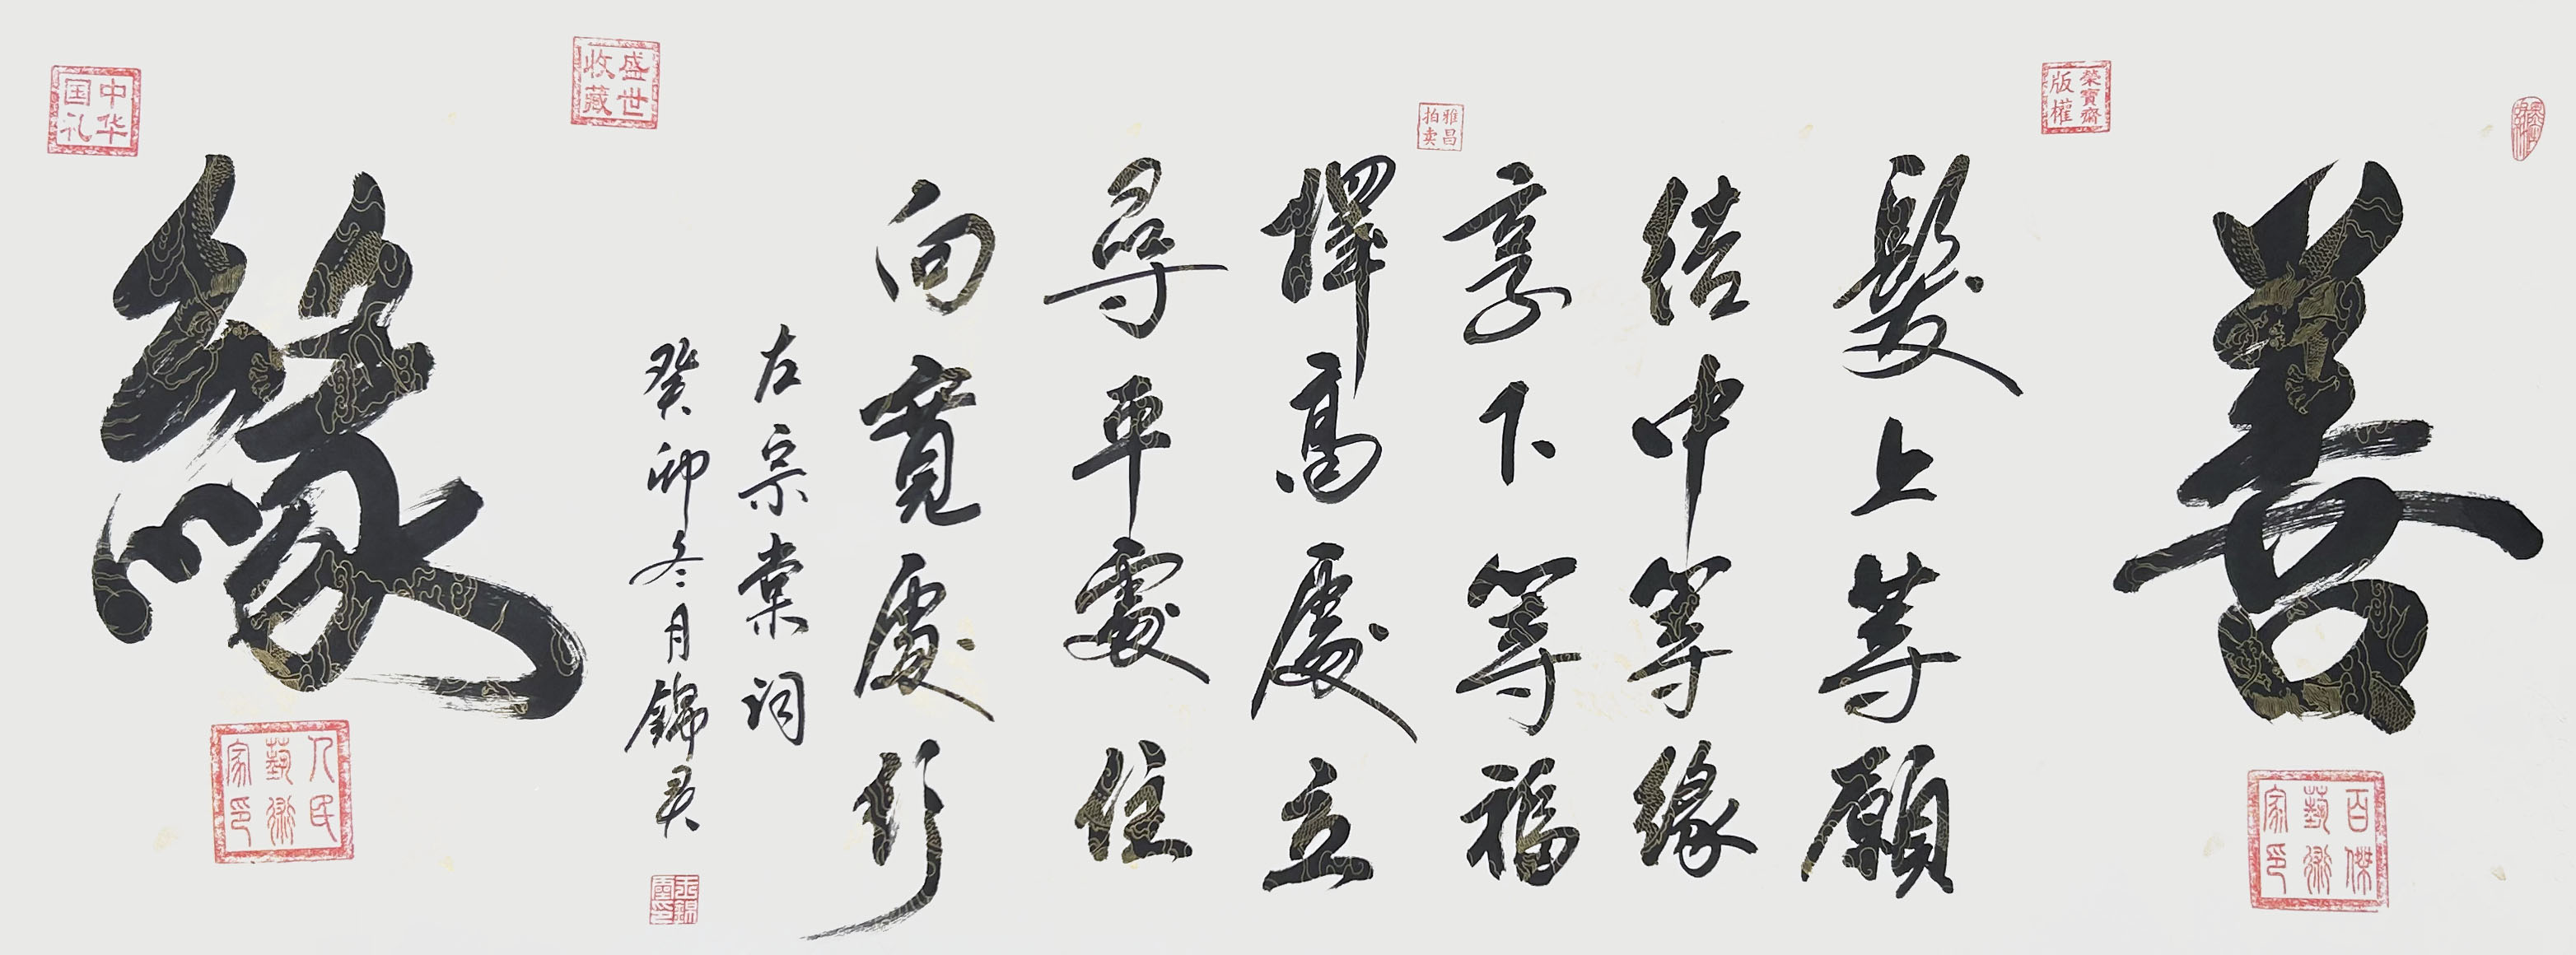 善
髮上等願
结中等緣
享下等福
擇高處立
尋平處住
向寬處行
左宗棠词
癸卯冬月錦云
緣
榮寶齋版權
雅昌拍卖
盛世收藏
中华国礼
百傑藝術家印
人民藝術家印